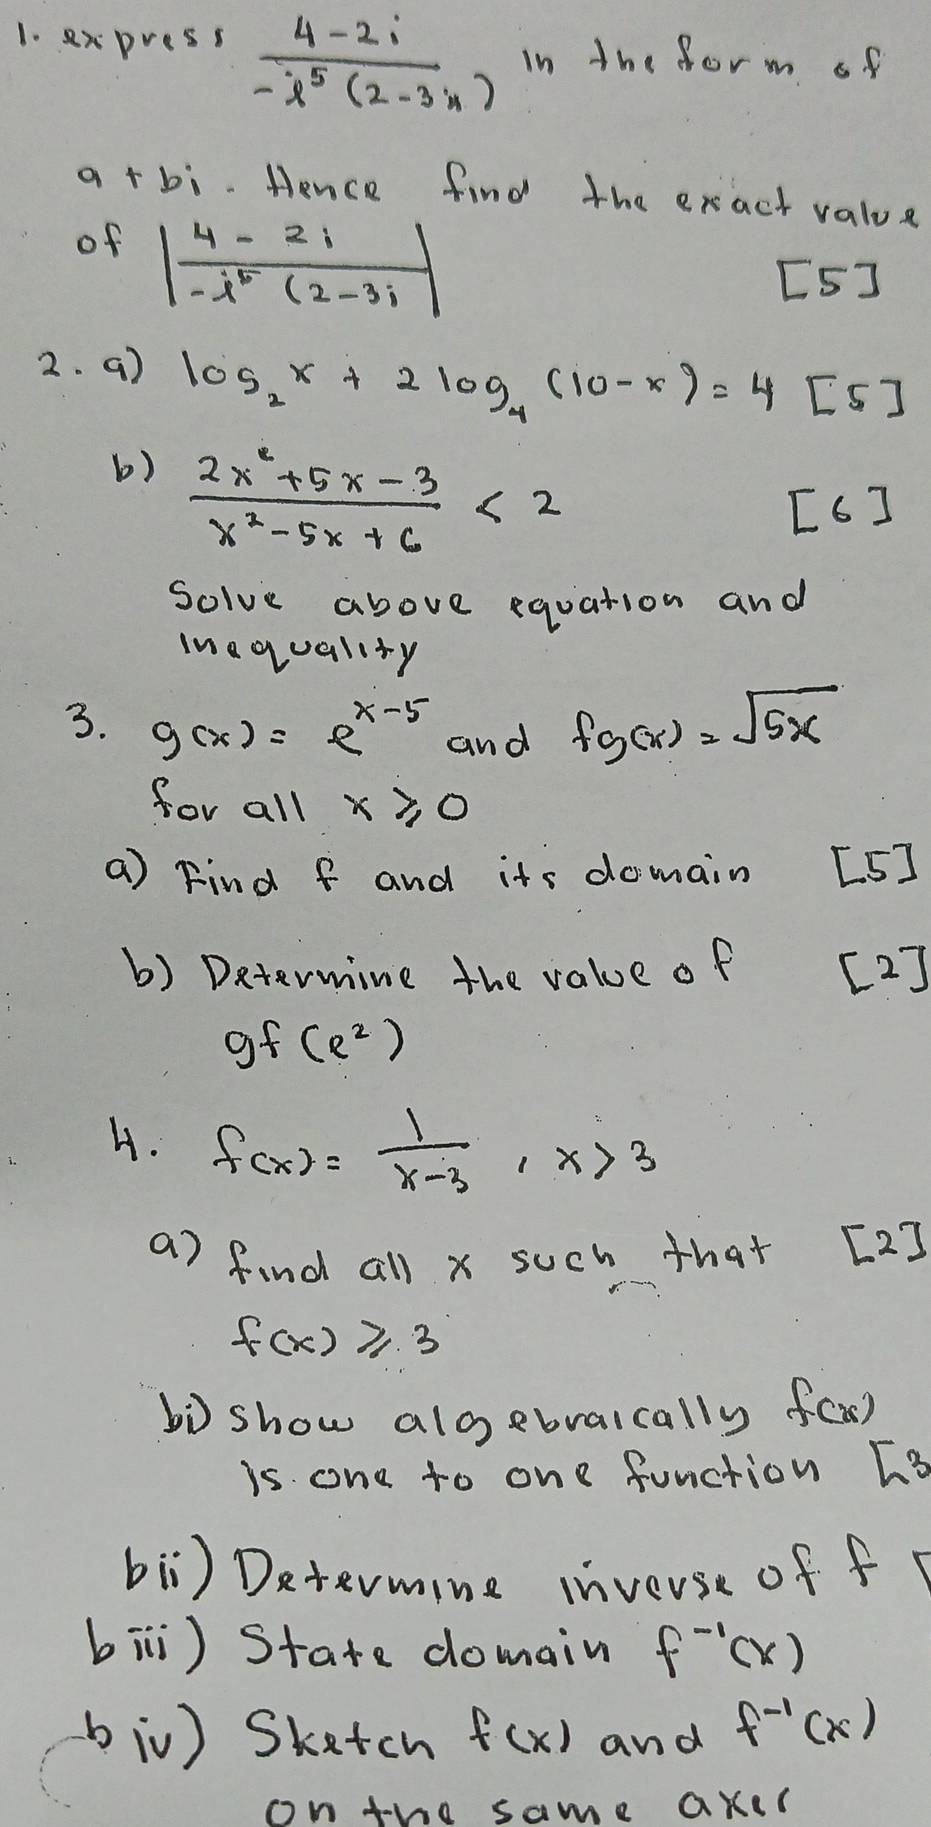 1. express (4-2i)/(-i⁵(2-3i)) in the form of
a + bi. Hence find the exact value
of |(4-2i)/(-i⁵(2-3i| [5]
2. a) log₂ x + 2 log₄ (10-x) = 4 [5]
b) (2x²+5x-3)/(x²-5x+6) < 2 [6]
Solve above equation and
inequality
3. g(x) = e^(x-5) and fg(x) = √(5x)
for all x ⩾ 0
a) Find f and its domain [5]
b) Determine the value of [2]
gf(e²)
4. f(x) = 1/(x-3) , x > 3
a) find all x such that [2]
f(x) ⩾ 3
bi) show algebraically f(x)
is one to one function [3
bii) Determine inverse of f [
biii) State domain f⁻¹(x)
biv) Sketch f(x) and f⁻¹(x)
on the same axes